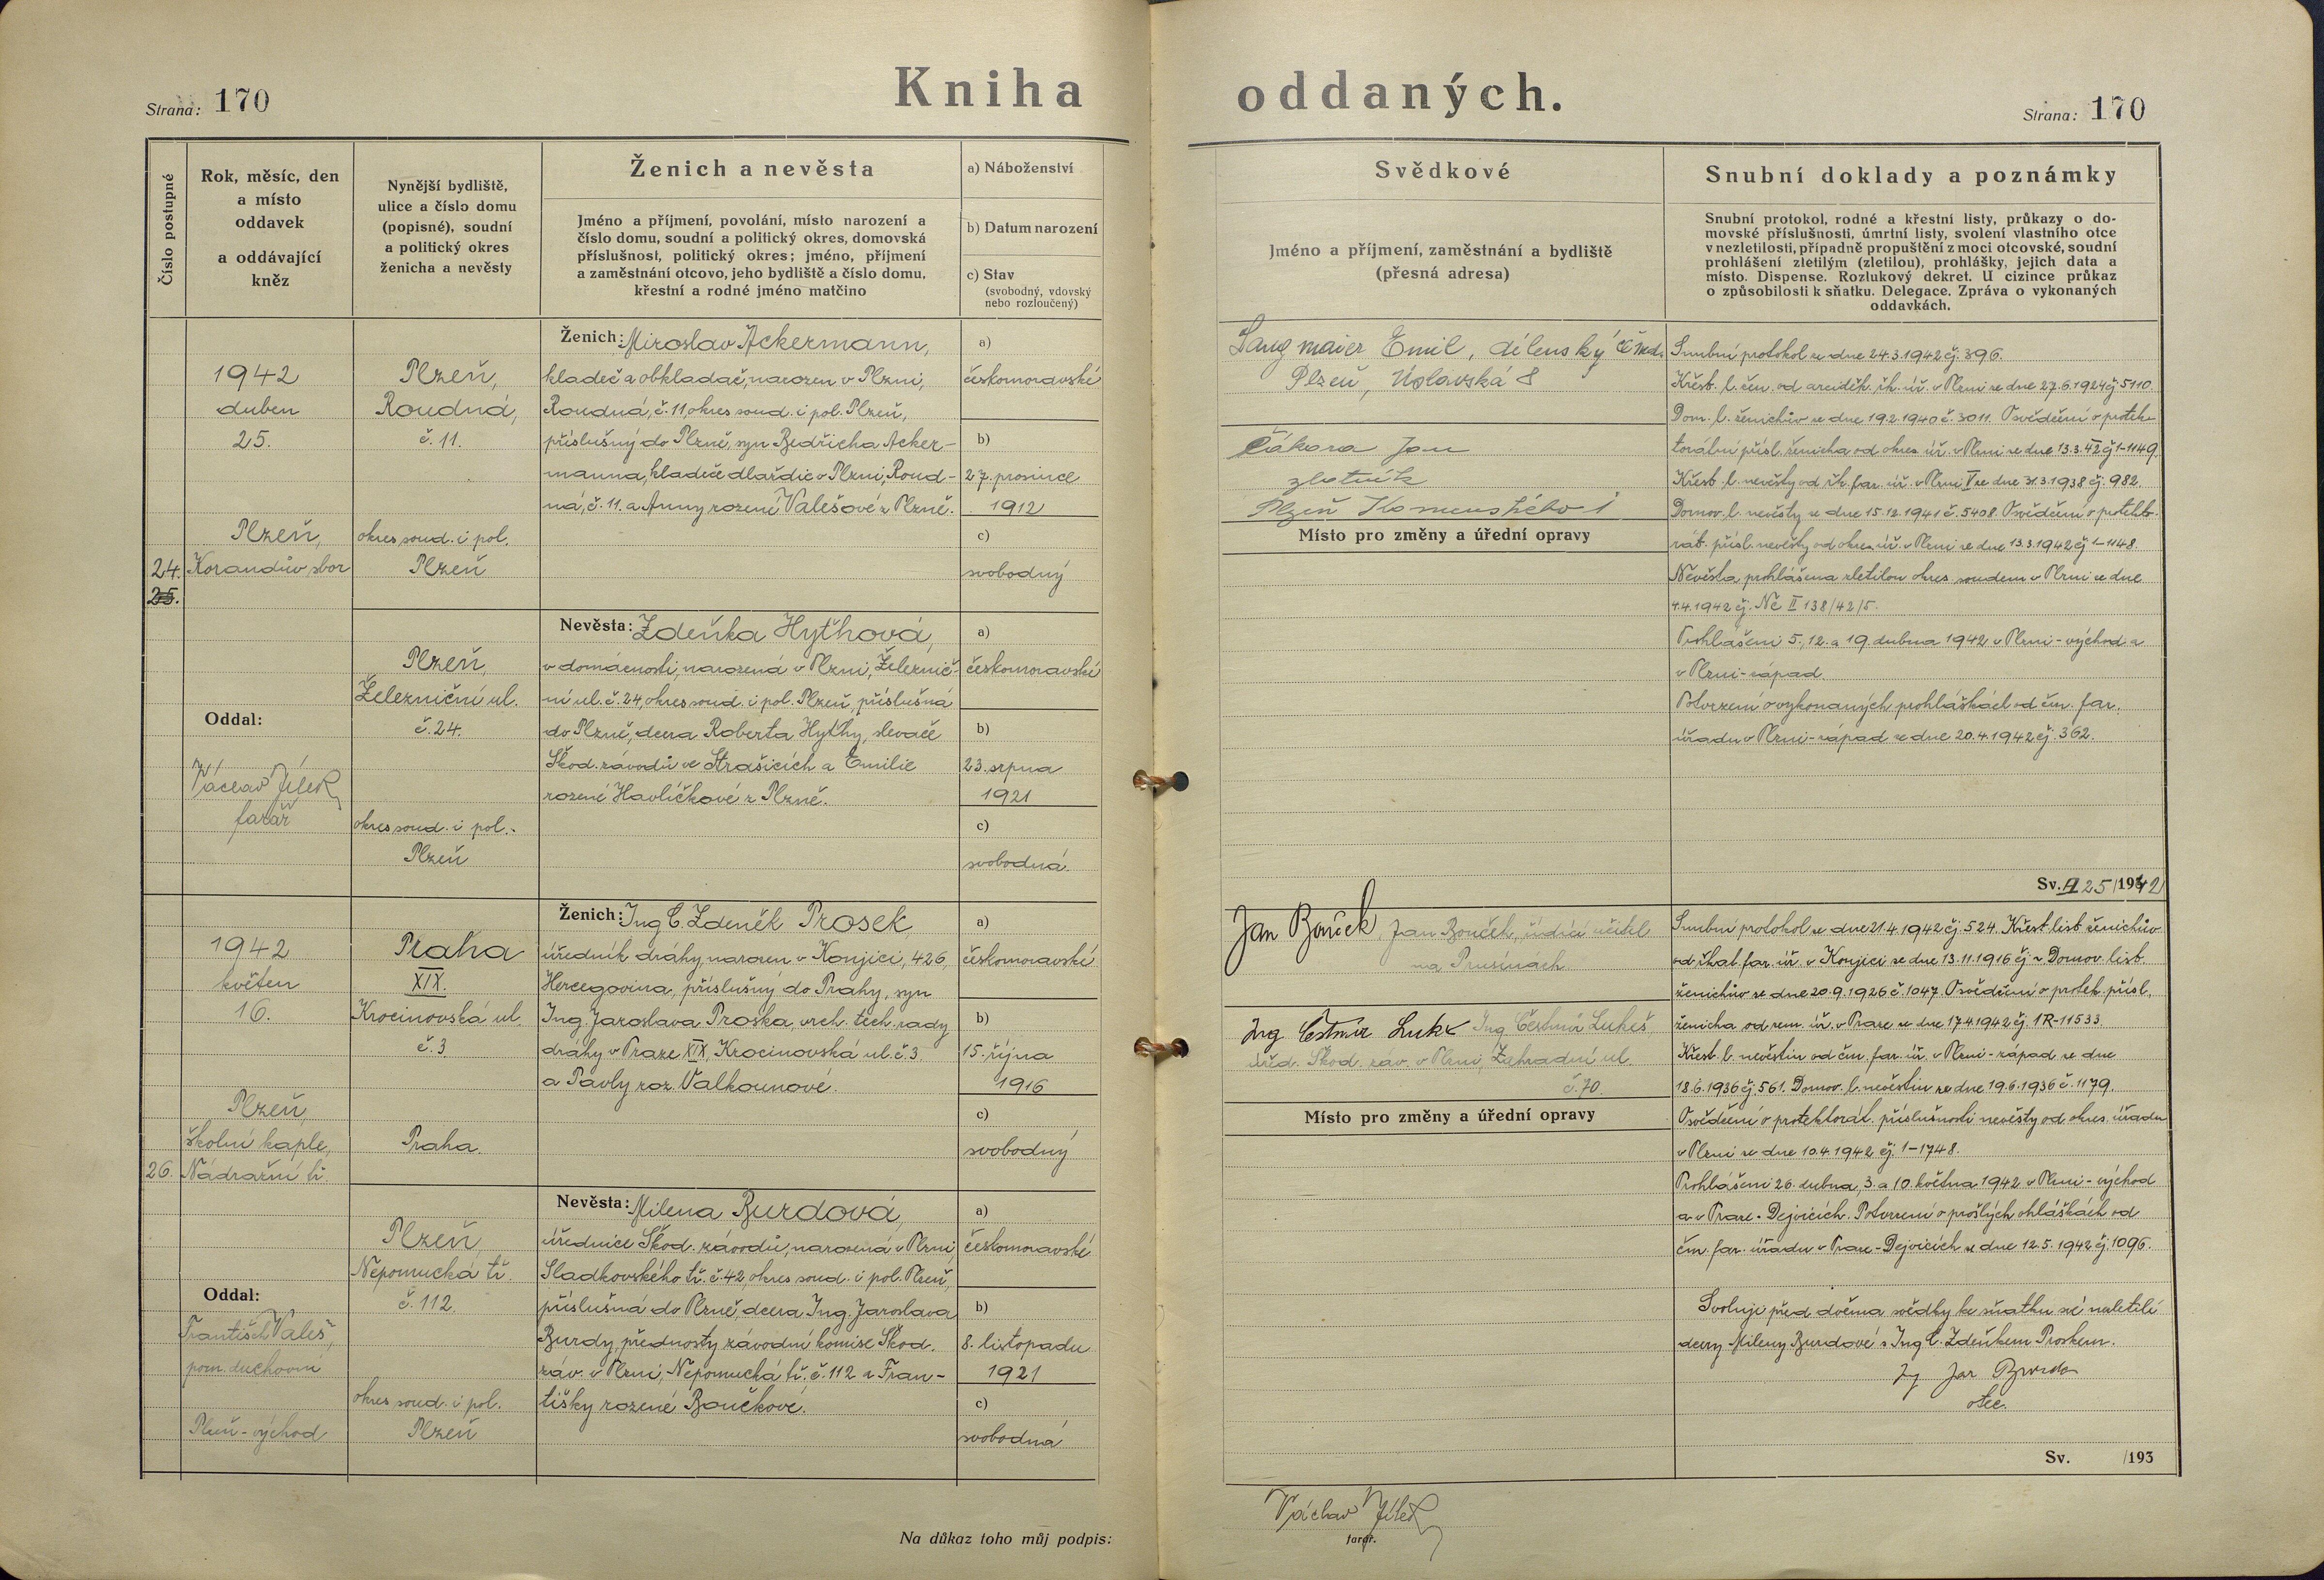 Strana: 170
Kniha oddaných.
Strana: 170
Číslo postupné
Rok, měsíc, den
a místo
oddavek
a oddávající
kněz
Nynější bydliště,
ulice a číslo domu
(popisné), soudní
a politický okres
ženicha a nevěsty
Ženich a nevěsta
Jméno a příjmení, povolání, místo narození a
číslo domu, soudní a politický okres, domovská
příslušnost, politický okres; jméno, příjmení
a zaměstnání otcovo, jeho bydliště a číslo domu,
křestní a rodné jméno matčino
a) Náboženství
b) Datum narození
c) Stav
(svobodný, vdovský
nebo rozloučený)
Svědkové
Jméno a příjmení, zaměstnání a bydliště
(přesná adresa)
Snubní doklady a poznámky
Snubní protokol, rodné a křestní listy, průkazy o do-
movské příslušnosti, úmrtní listy, svolení vlastního otce
v nezletilosti, případně propuštění z moci otcovské, soudní
prohlášení zletilým (zletilou), prohlášky, jejich data a
místo. Dispense. Rozlukový dekret. U cizince průkaz
o způsobilosti k sňatku. Delegace. Zpráva o vykonaných
oddavkách.
24.
25.
1942
duben
25.
Plzeň,
Korandův sbor
Oddal:
Václav Jílek
farář
Plzeň,
Roudná,
č. 11.
okres soud. i pol.
Plzeň
Ženich: Miroslav Ackermann,
kladeč a obkladač, narozen v Plzni,
Roudná, č. 11, okres soud. i pol. Plzeň,
příslušný do Plzně, syn Bedřicha Acker-
manna, kladeče dlaždic v Plzni, Roud-
ná, č. 11. a Anny rozené Valešové z Plzně.
a)
českomoravské
b)
27. prosince
1912
c)
svobodný
Plzeň,
Železniční ul.
č. 24.
okres soud. i pol.
Plzeň
Nevěsta: Zdeňka Hyťhová,
v domácnosti, narozená v Plzni, Železnič-
ní ul. č. 24, okres soud. i pol. Plzeň, příslušná
do Plzně, dcera Roberta Hyťhy, slevače
Škod. závodů ve Strašicích a Emilie
rozené Havlíčkové z Plzně.
a)
českomoravské
b)
23. srpna
1921
c)
svobodná.
Langmaier Emil, dílenský
Plzeň, Úslavská 8
Čákora Jan
zlatník
Plzeň Komenského 1
Místo pro změny a úřední opravy
Snubní protokol ze dne 24.3.1942 čj. 396.
Křest. l. žen. od arciděk. řk. úř. v Plzni ze dne 27.6.1924 čj. 5110.
Dom. l. ženichův ze dne 19.2.1940 č. 3011. Osvědčení o protek-
torátní přísl. ženicha od okres. úř. v Plzni ze dne 13.3.42 čj 1-1149.
Křest. l. nevěsty od řk. far. úř. v Plzni V ze dne 31.3.1938 čj. 982.
Domov. l. nevěsty ze dne 15.12.1941 č. 5408. Osvědčení o protekto-
rát. přísl. nevěsty od okres. úř. v Plzni ze dne 13.3.1942 čj 1-1148.
Nevěsta prohlášena zletilou okres. soudem v Plzni ze dne
4.4.1942 čj. Nc II 138/42/5.
Prohlášeni 5., 12. a 19 dubna 1942 v Plzni-východ a
v Plzni-západ.
Potvrzení o vykonaných prohláškách od čm. far.
úřadu v Plzni-západ ze dne 20.4.1942 čj. 362.
Sv. A 25/1942
26.
1942
květen
16.
Plzeň,
školní kaple,
Nádražní tř.
Oddal:
František Valeš,
pom. duchovní
Plzeň-východ
Praha
XIX.
Krocinovská ul.
č. 3
Praha.
Ženich: Ing C. Zdeněk Prosek
úředník dráhy, narozen v Konjici, 426,
Hercegovina, příslušný do Prahy, syn
Ing. Jaroslava Proska, vrch. tech. rady
dráhy v Praze XIX, Krocinovská ul. č. 3.
a Pavly roz. Valkounové.
a)
českomoravské
b)
15. října
1916
c)
svobodný
Plzeň,
Nepomucká tř.
č. 112.
okres soud. i pol.
Plzeň
Nevěsta: Milena Burdová,
úřednice Škod. závodů, narozená v Plzni,
Sladkovského tř. č. 42, okres soud. i pol. Plzeň,
příslušná do Plzně, dcera Ing. Jaroslava
Burdy, přednosty závodní komise Škod.
záv. v Plzni, Nepomucká tř. č. 112 a Fran-
tišky rozené Boučkové.
a)
českomoravské
b)
8. listopadu
1921
c)
svobodná
Jan Bouček, Jan Bouček, řídící učitel
na Prusinách.
Ing Čestmír Lukeš Ing. Čestmír Lukeš
úřed. Škod. záv. v Plzni, Zahradní ul.
č. 70.
Místo pro změny a úřední opravy
Snubní protokol ze dne 21.4.1942 čj. 524. Křest. list ženichův
od řkat. far. úř. v Konjici ze dne 13.11.1916 čj - Domov. list
ženichův ze dne 20.9.1926 č. 1047. Osvědčení o protek. přísl.
ženicha od zem. úř. v Praze ze dne 17.4.1942 čj. 1R-11533.
Křest. l. nevěstin od čm. far. úř. v Plzni-západ ze dne
18.6.1936 čj. 561. Domov. l. nevěstin ze dne 19.6.1936 č. 1179.
Osvědčení o protektorát. příslušnosti nevěsty od okres. úřadu
v Plzni ze dne 10.4.1942 čj. 1-1748.
Prohlášeni 26. dubna, 3. a 10. května 1942 v Plzni-východ
a v Praze-Dejvicích. Potvrzení o prošlých ohláškách od
čm. far. úřadu v Praze-Dejvicích ze dne 12.5.1942 čj 1096.
Svoluji před dvěma svědky ke sňatku své nezletilé
dcery Mileny Burdové s Ing C. Zdeňkem Proskem.
Ing Jar Burda
otec.
Sv. /193
Na důkaz toho můj podpis:
Václav Jílek
farář.